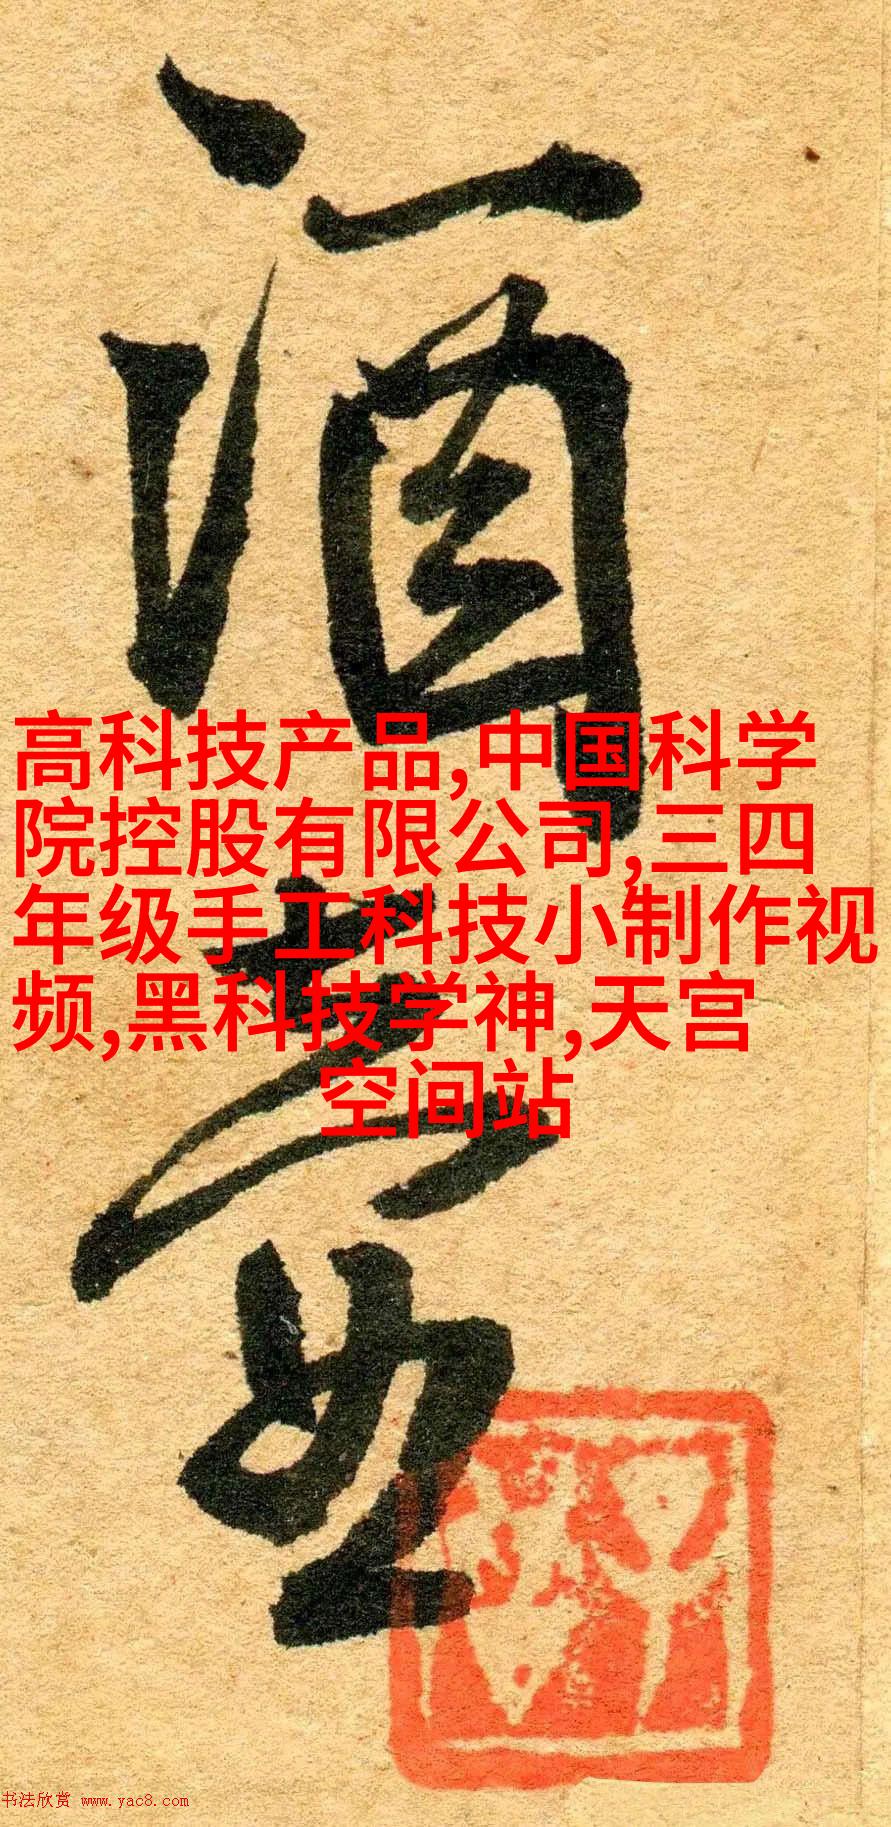 酒
高科技产品,中国科学
院控股有限公司,三四
年级手工科技小制作视
频,黑科技学神,天宫
空间站
书法欣赏 www.yac8.com